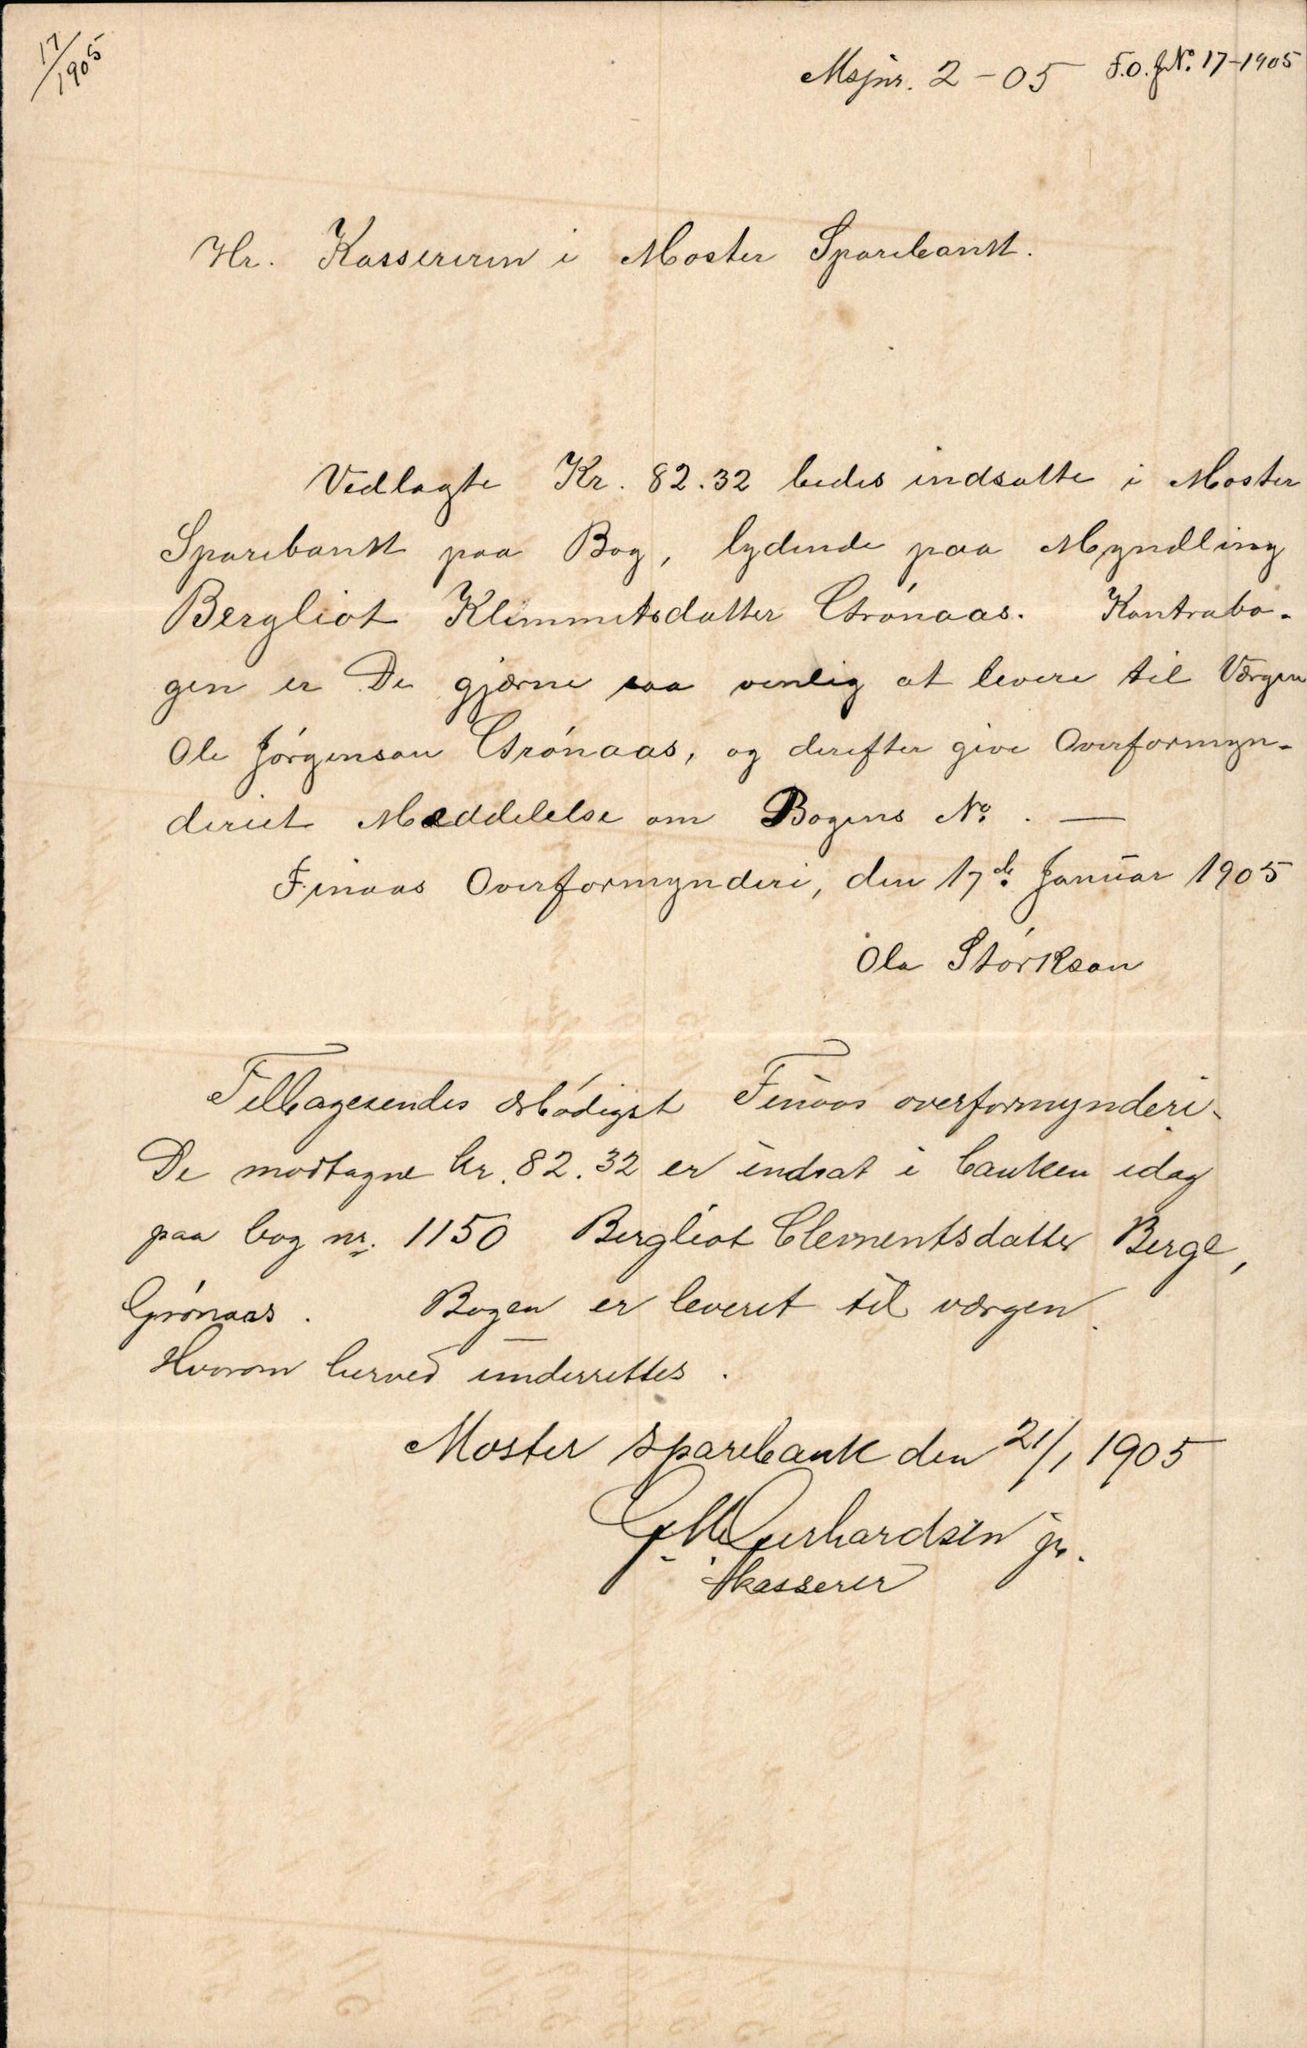 17/1905
Msjnr. 2-05 F.O.JNo. 17-1905
Hr. Kassereren i Moster Sparebank.
Vedlagte Kr. 82.32 bedes indsatte i Moster
Sparebank paa Bog, lydende paa Myndling
Bergliot Klemmetsdatter Grønaas. Kontrabo-
gen er De gjærne saa venlig at levere til Værgen
Ole Jørgenson Grønaas, og derefter give Overformyn-
deriet Meddelelse om Bogens No. —
Finaas Overformynderi, den 17de Januar 1905
Ola Størkson
Tilbagesendes ærbødigst Finaas overformynderi.
De modtagne kr. 82.32 er indsat i banken idag
paa bog nr. 1150 Bergliot Clementsdatter Berge,
Grønaas. Bogen er leveret til værgen.
Hvorom herved underrettes.
Moster sparebank den 21/1 1905
G. M. Gerhardsen jr.
kasserer